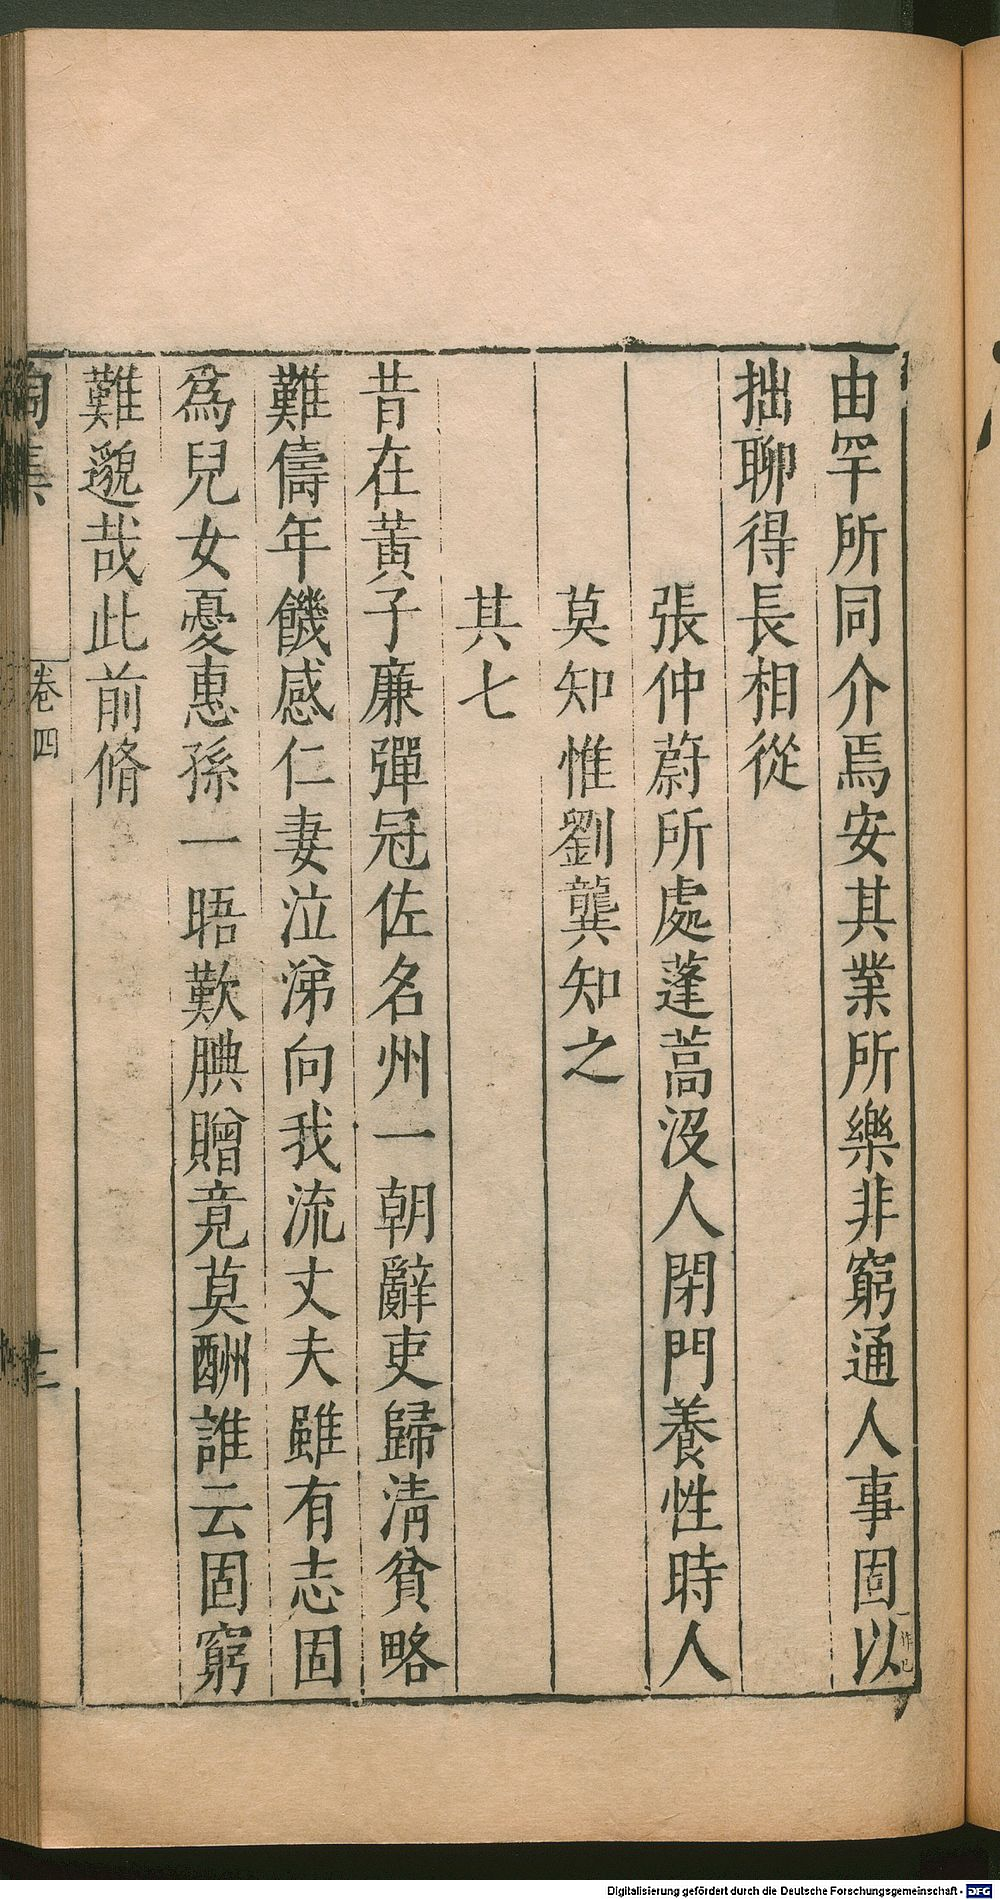 由罕所同介焉安其業所樂非窮通人事固以一作已
拙聊得長相從
張仲蔚所處蓬蒿没人閉門養性時人
莫知惟劉龔知之
其七
昔在黃子廉彈冠佐名州一朝辭吏歸清貧略
難儔年饑感仁妻泣涕向我流丈夫雖有志固
爲兒女憂惠孫一晤歎腆贈竟莫酬誰云固窮
難邈哉此前脩
陶集 卷四
Digitalisierung gefördert durch die Deutsche Forschungsgemeinschaft - DFG